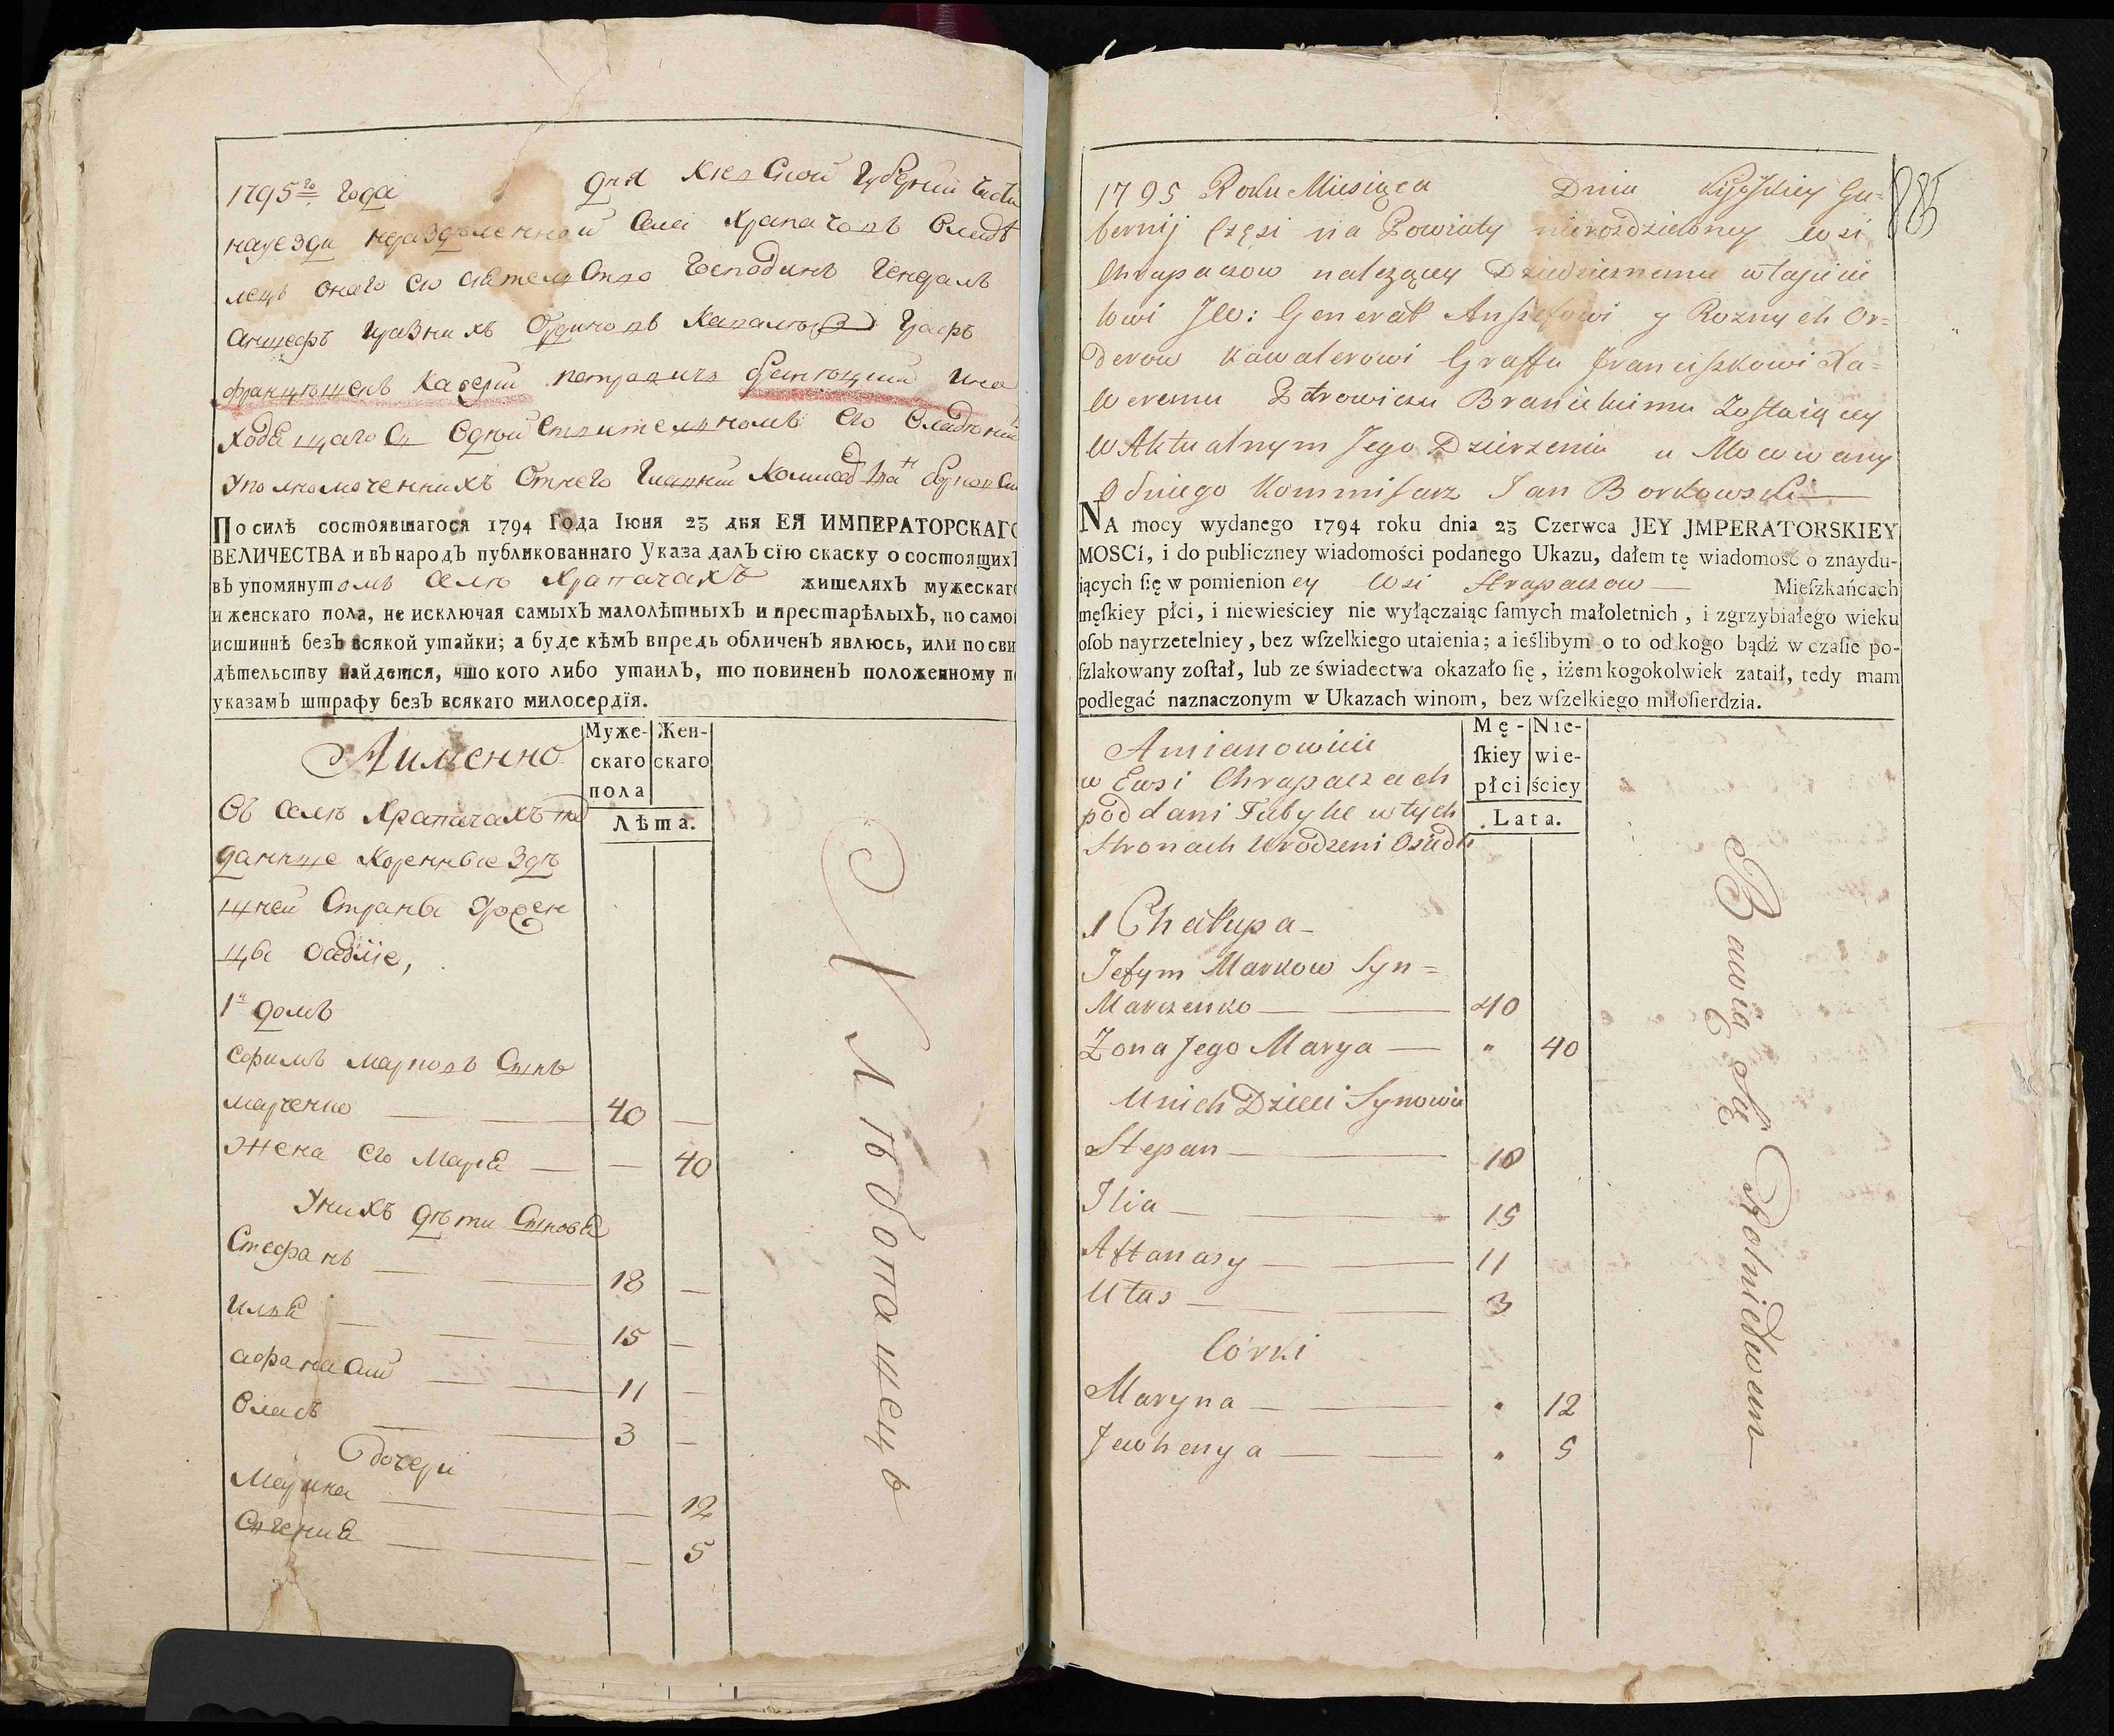 1795го года дня Киевской Губернии части
науезди неразделенной села Храпачовъ владе
лецъ онаго его сиятелство Господинъ Генералъ
аншефъ иразнихъ Ординовъ Кавалеръ Графъ
францышекъ Каверий петровичъ браницкий ина
ходящагося
уполномоченнихъ отнего
По силѣ состоявшагося 1794 Года Іюня 23 дня ЕЯ ИМПЕРАТОРСКАГО
ВЕЛИЧЕСТВА и въ народъ публикованнаго Указа далъ сїю скаску о состоящихъ
въ упомянутомъ селѣ Храпачахъ жителяхъ мужескаго
и женскаго пола, не исключая самыхъ малолѣтныхъ и престарѣлыхъ, по само
истиннѣ безъ всякой утайки; а буде кѣмъ впредь обличенъ явлюсь, или по сви
дѣтельству найдется, что кого либо утаилъ, то повиненъ положенному п
указамъ штрафу безъ всякаго милосердїя.
Аименно
Муже-скаго пола
Жен-скаго
Лѣта.
Въ селѣ Храпачахъ по
данние Коренные зде
шней страны урожен
цы
1й домъ
Ефимъ марковъ Сынъ
марченко — 40 —
Жена его Мария — — 40
Унихъ дѣти Сыновя
Стефанъ — 18 —
Илья — 15 —
афанасий — 11 —
Власъ — 3 —
дочери
Марина — — 12
Евгения — — 5
Хлѣбопашецъ
885
1795 Roku Miesiąca Dnia Kijoskiey Gu=
bernij Częsi na Powiaty nierozdzieloney Wsi
Chrapaczow nalezącey Dziedzicznemu własciciel
lowi JW: Generał Anszefowi y Roznych Or=
derow Kawalerowi Graffu Franciszkowi Xa=
Weremu Petrowiczu Branickimu Zostaiącey
W Aktualnym Jego Dzierzeniu u Mocowany
Odniego Kommisarz Jan Borkowski
NA mocy wydanego 1794 roku dnia 23 Czerwca JEY JMPERATORSKIEY
MOSCí, i do publiczney wiadomości podanego Ukazu, dałem tę wiadomość o znaydu-
iących ſię w pomienioney Wsi Hrapaczow — Mieſzkańcach
męſkiey płci, i niewieściey nie wyłączaiąc ſamych małoletnich, i zgrzybiałego wieku
oſob nayrzetelniey, bez wſzelkiego utaienia; a ieślibym o to od kogo bądź w czaſie po-
ſzlakowany został, lub ze świadectwa okazało ſię, iżem kogokolwiek zataił, tedy mam
podlegać naznaczonym w Ukazach winom, bez wſzelkiego miłoſierdzia.
Amianowicie
w Ewsi Chrapaczach
poddani Fabyle wtych
Stronach Urodzeni Osiedli
Mę-ſkiey płci
Nie-wie-ściey
Lata.
1 Chałupa —
Jefym Markow Syn =
Marczenko — 40
Zona Jego Marya — " 40
Unich Dzieci Synowie
Stepan — 18
Ilia — 15
Aftanasy — 11
Ułas — 3
Córki
Maryna — " 12
Jewhenya — " 5
Bawią Się Rolnictwem